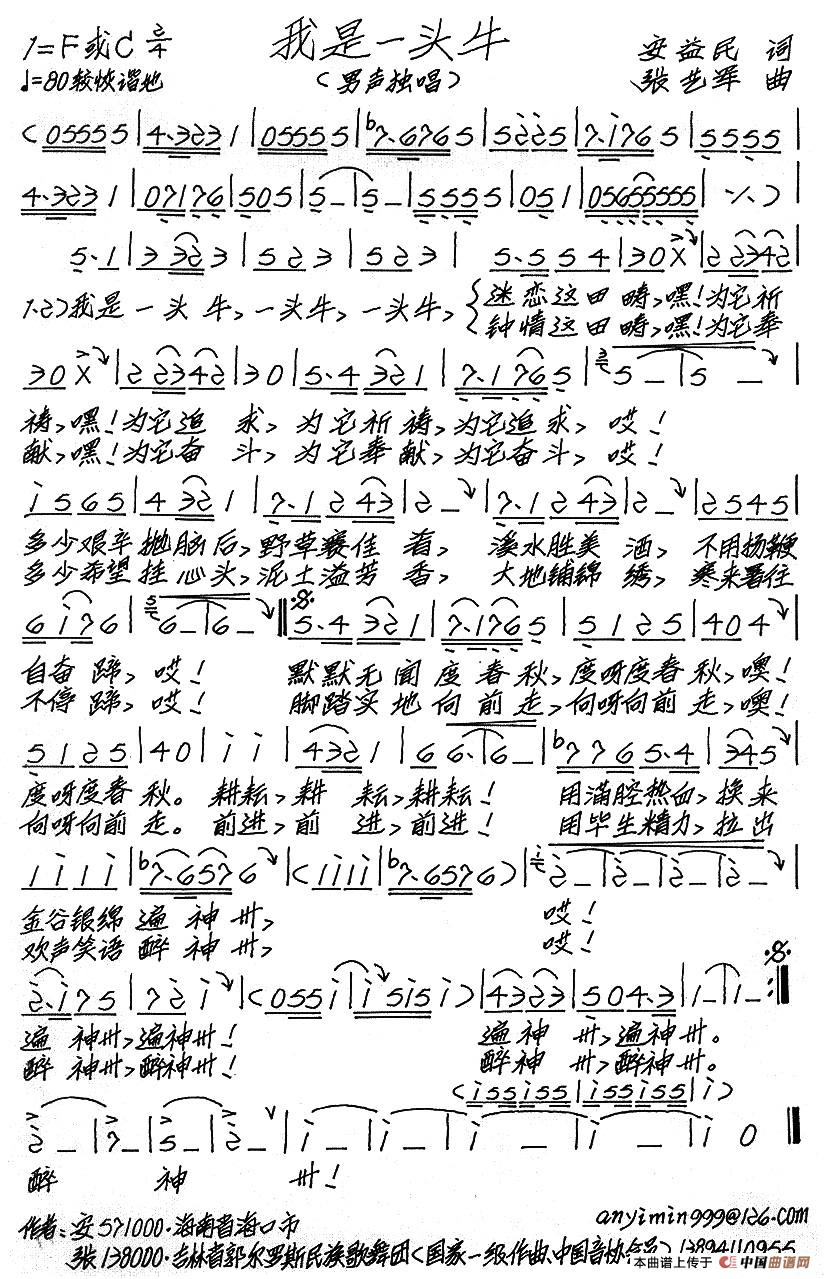 我是一头牛
1=F或C 2/4
安益民 词
♩=80较恢谐地
(男声独唱)
张艺军 曲
(05555|4·3231|05555|♭7·6765|5225|7·1765|5555|
4·3231|07176|505|5-|5-|5555|051|05655555|٪)|
5·1|3323|523|523|5·554|30X|22342|
1.2)我是一头牛,一头牛,一头牛,
迷恋这田畴,嘿!为它祈
钟情这田畴,嘿!为它奉
30X|22342|30|5·4321|7·1765|5-|5-|
祷,嘿!为它追 求,为它祈祷,为它追求,哎!
献,嘿!为它奋 斗,为它奉献,为它奋斗,哎!
i565|4321|7·1243|2-|7·1243|2-|2545|
多少艰辛抛脑后,野草赛佳肴,溪水胜美酒,不用扬鞭
多少希望挂心头,泥土溢芳香,大地铺锦绣,寒来暑往
6i76|6-|6-‖5·4321|7·1765|5125|404|
自奋蹄,哎! 默默无闻度春秋,度呀度春秋,噢!
不停蹄,哎! 脚踏实地向前走,向呀向前走,噢!
5125|40|ii|4321|66·|6-|♭7765·4|345|
度呀度春秋。耕耘,耕 耘,耕耘! 用满腔热血,换来
向呀向前走。前进,前 进,前进! 用毕生精力,拉出
1i1i|♭7·6576|(1i1i|♭7·6576)|2-|2-|2-|2-|
金谷银绵遍神州, 哎!
欢声笑语醉神州, 哎!
2·i75|72i|(055i|i5i5i)|4323|504·3|1-|1-:‖
遍神州,遍神州! 遍神州,遍神州。
醉神州,醉神州! 醉神州,醉神州。
(i55i55|i55i55|i)
2-|7-|5-|2-|i-|i-|-|i-|i0‖
醉 神 州!
作者:安571000·海南省海口市
anyimin999@126.com
张138000·吉林省郭尔罗斯民族歌舞团(国家一级作曲、中国音协会员)13894110955
本曲谱上传于 中国曲谱网